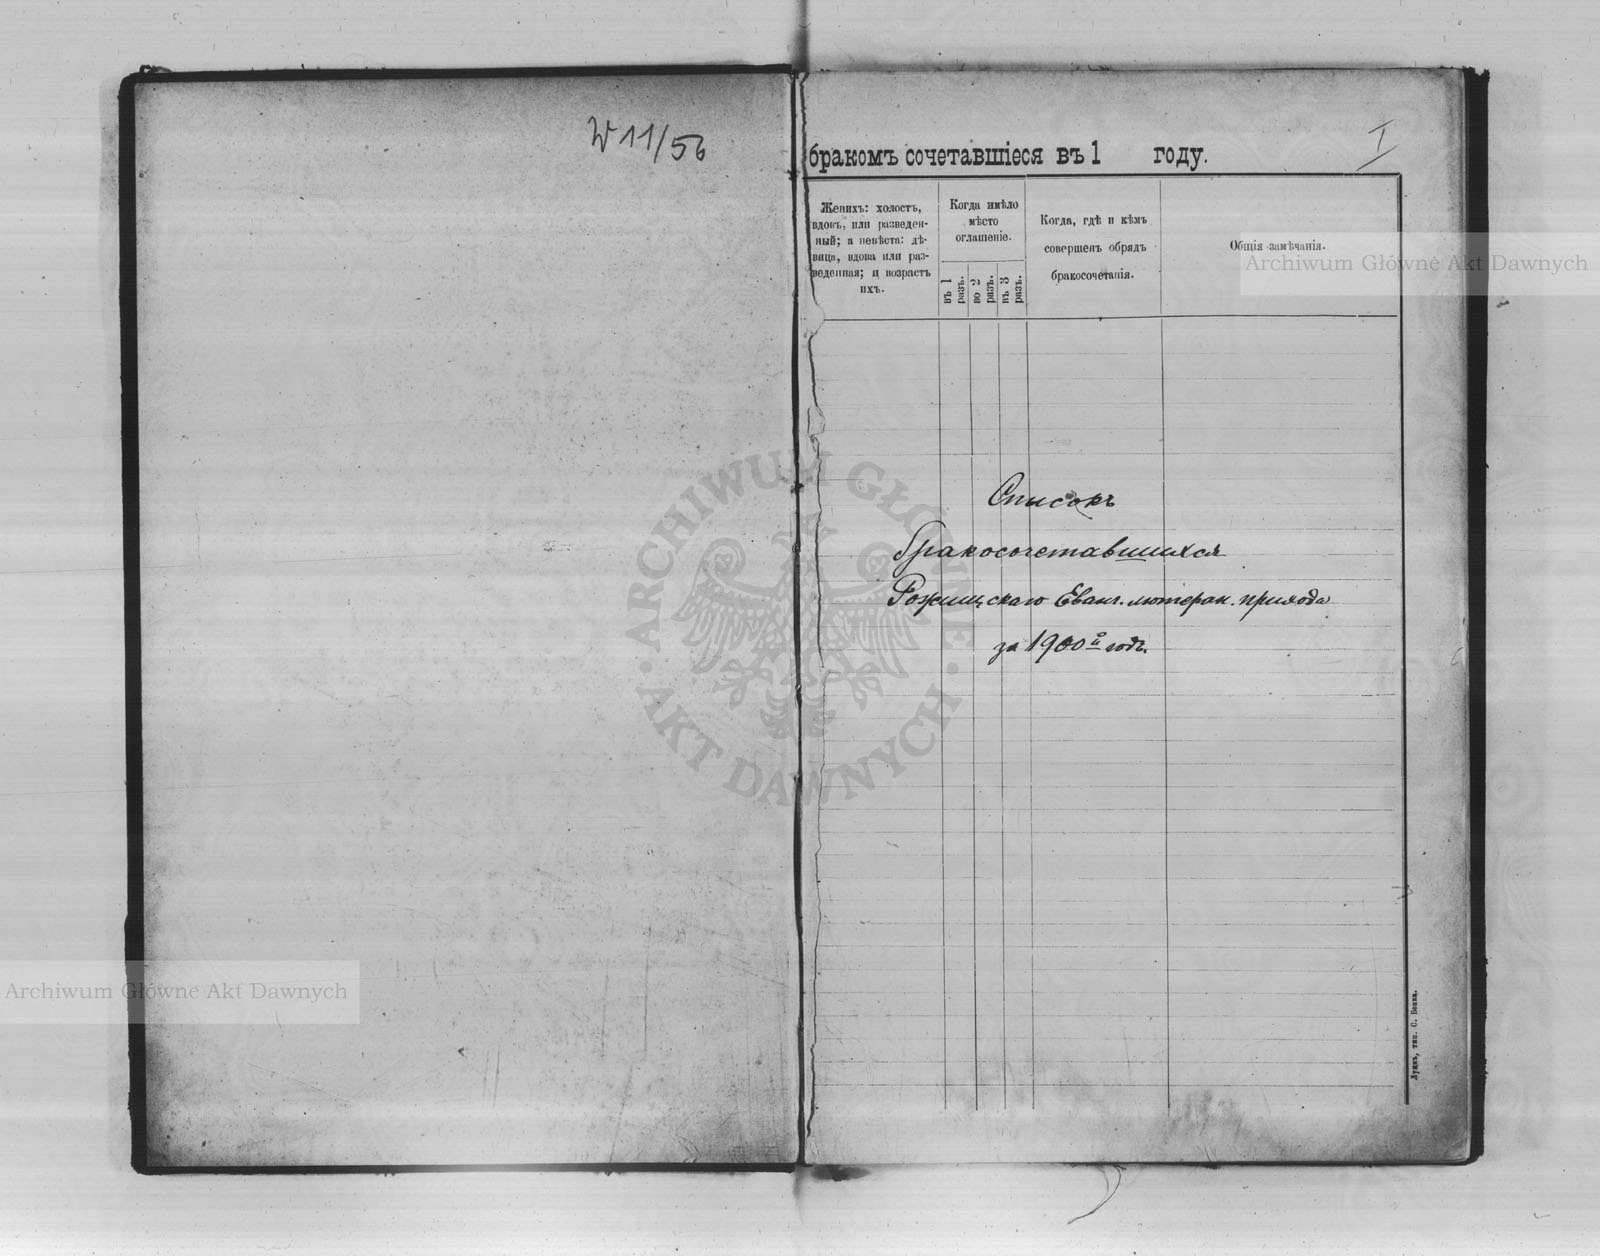 W 11/56
I
бракомъ сочетавшіеся въ 1 году.
Женихъ: холостъ,
вдовъ, или разведен-
ный; а невѣста: дѣ-
вица, вдова или раз-
веденная; и возрастъ
ихъ.
Когда имѣло
мѣсто
оглашеніе.
въ 1
разъ.
во 2
разъ.
въ 3
разъ.
Когда, гдѣ и кѣмъ
совершенъ обрядъ
бракосочетанія.
Общія замѣчанія.
Archiwum Główne Akt Dawnych
Списокъ
бракосочетавшихся
Рожищскаго Еванг. лютеран. прихода
за 1900й годъ.
ARCHIWUM GŁÓWNE
AKT DAWNYCH
Archiwum Główne Akt Dawnych
Луцкъ, тип. С. Бенка.